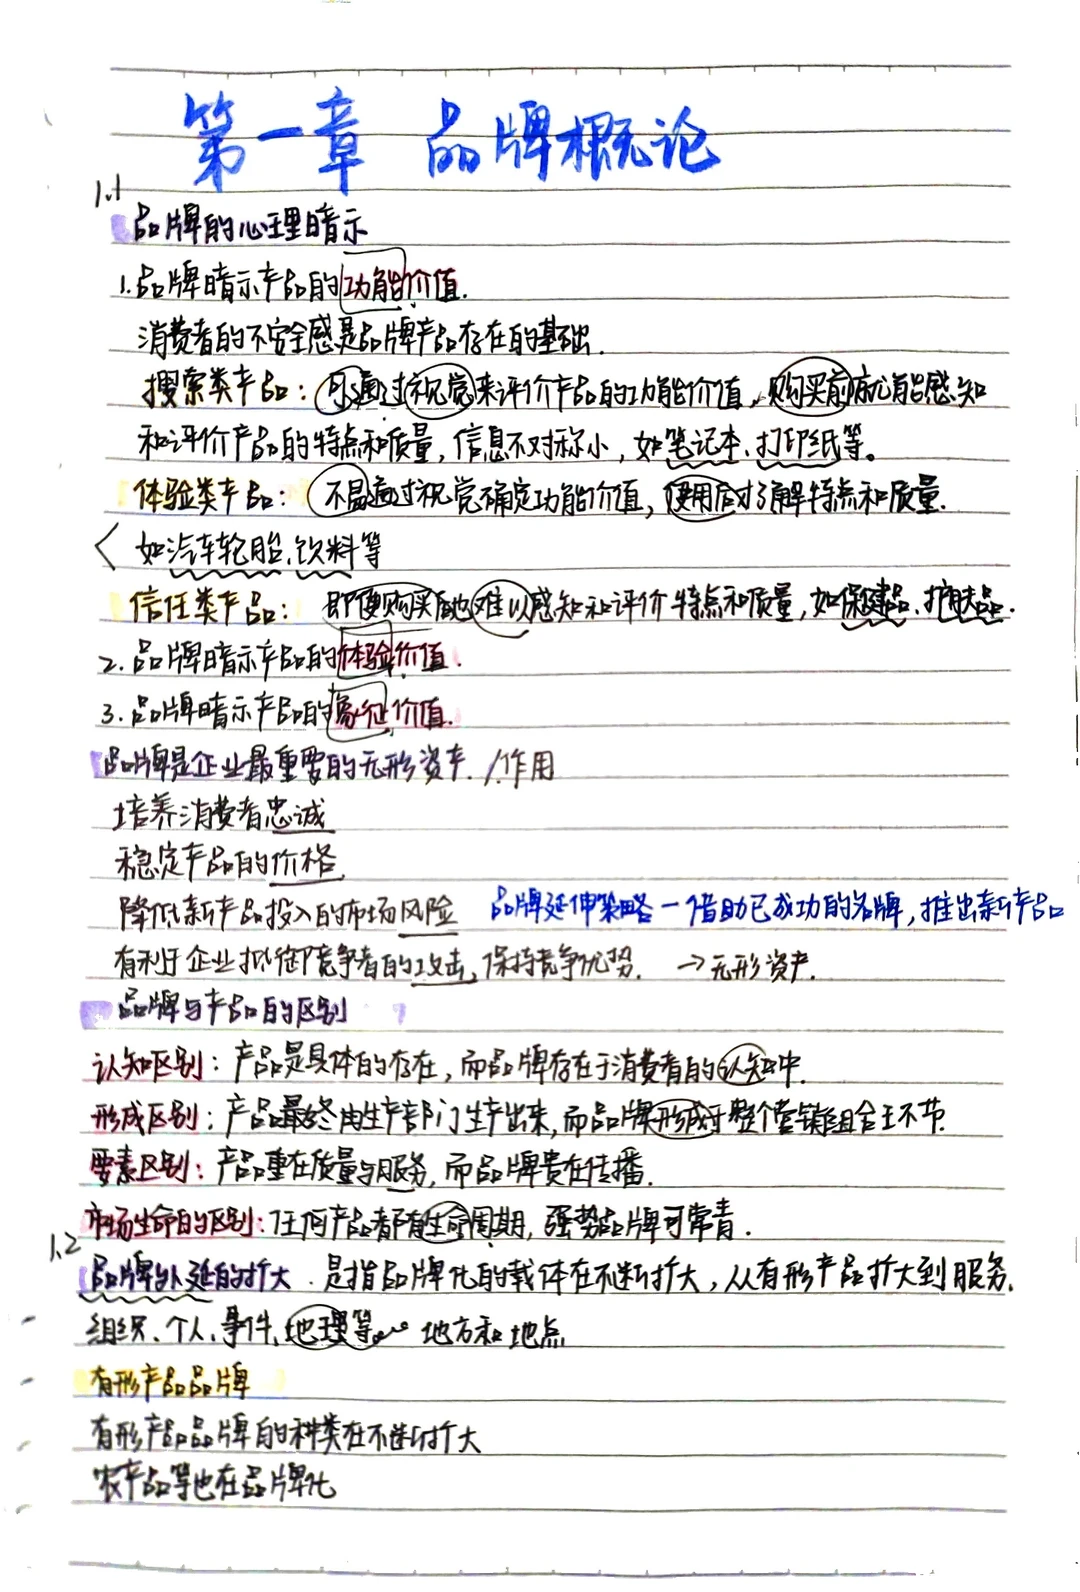 第一章 品牌概论
1.1
品牌的心理暗示
1.品牌暗示产品的功能价值.
消费者的不安全感是品牌产品存在的基础.
搜索类产品：可通过视觉来评价产品的功能价值，购买前就能感知
和评价产品的特点和质量，信息不对称小，如笔记本、打印纸等。
体验类产品：不易通过视觉确定功能价值，使用后才了解特点和质量.
如汽车轮胎、饮料等
信任类产品：即便购买后也难以感知和评价特点和质量，如保健品、护肤品.
2.品牌暗示产品的体验价值.
3.品牌暗示产品的象征价值.
品牌是企业最重要的无形资产./作用
培养消费者忠诚
稳定产品的价格
降低新产品投入的市场风险 品牌延伸策略－借助已成功的名牌，推出新产品
有利于企业抵御竞争者的攻击，保持竞争优势. →无形资产.
品牌与产品的区别
认知区别：产品是具体的存在，而品牌存在于消费者的认知中.
形成区别：产品最终由生产部门生产出来，而品牌形成于整个营销组合环节.
要素区别：产品重在质量与服务，而品牌贵在传播.
市场生命的区别：任何产品都有生命周期，强势品牌可常青.
1.2
品牌外延的扩大.是指品牌化的载体在不断扩大，从有形产品扩大到服务、
组织、个人、事件、地理等 地方和地点
有形产品品牌
有形产品品牌的种类在不断扩大
农产品等也在品牌化